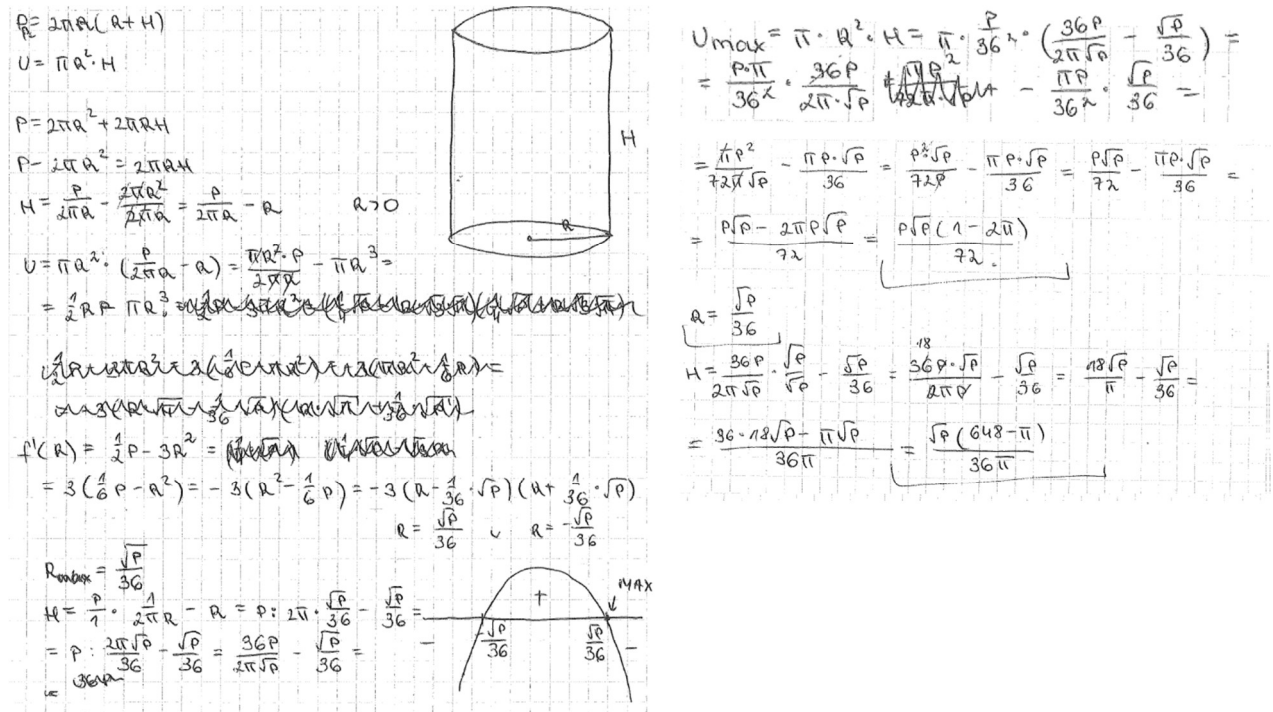 P = 2πR(R+H)
V = πR²·H
P = 2πR² + 2πRH
P - 2πR² = 2πRH
H = P/2πR - 2πR²/2πR = P/2πR - R    R>0
V = πR²·(P/2πR - R) = πR²·P/2πR - πR³ =
= 1/2 RP - πR³
f'(R) = 1/2 P - 3R² =
= 3(1/6 P - R²) = -3(R² - 1/6 P) = -3(R - 1/36·√P)(R + 1/36·√P)
R = √P/36 ∪ R = -√P/36
Rmax = √P/36
H = P/1 · 1/2πR - R = P : 2π·√P/36 - √P/36 =
= P : 2π√P/36 - √P/36 = 36P/2π√P - √P/36 =
H
R
MAX
+
-√P/36
√P/36
-
-
Vmax = π·R²·H = π·P/36²·(36P/2π√P - √P/36) =
= P·π/36² · 36P/2π·√P - πP/36² · √P/36 =
= πP²/72π√P - πP·√P/36 = P²·√P/72P - πP·√P/36 = P√P/72 - πP·√P/36 =
= P√P - 2πP√P/72 = P√P(1-2π)/72
R = √P/36
H = 36P/2π√P · √P/√P - √P/36 = 18 36P·√P/2πP - √P/36 = 18√P/π - √P/36 =
= 36·18√P - π√P/36π = √P(648-π)/36π